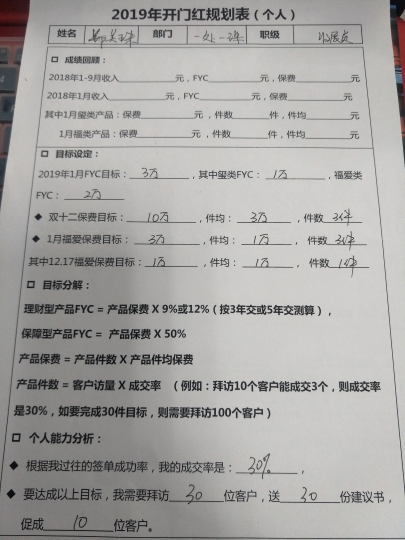 2019年开门红规划表（个人）
姓名 部门 一处一课 职级
□ 成绩回顾：
2018年1-9月收入 元，FYC 元，保费 元
2018年1月收入 元，FYC 元，保费 元
其中1月玺类产品：保费 元，件数 件，件均 元
1月福类产品：保费 元，件数 件，件均 元
□ 目标设定：
2019年1月FYC目标：3万，其中玺类FYC：1万，福爱类
FYC：2万
◆ 双十二保费目标：10万，件均：3万，件数 3件
◆ 1月福爱保费目标：3万，件均：1万，件数 3件
其中12.17福爱保费目标：1万，件均：1万，件数 1件
□ 目标分解：
理财型产品FYC = 产品保费 X 9%或12%（按3年交或5年交测算），
保障型产品FYC = 产品保费 X 50%
产品保费 = 产品件数 X 产品件均保费
产品件数 = 客户访量 X 成交率 （例如：拜访10个客户能成交3个，则成交率
是30%，如要完成30件目标，则需要拜访100个客户）
□ 个人能力分析：
◆ 根据我过往的签单成功率，我的成交率是：30%，
◆ 要达成以上目标，我需要拜访 30 位客户，送 30 份建议书，
促成 10 位客户。